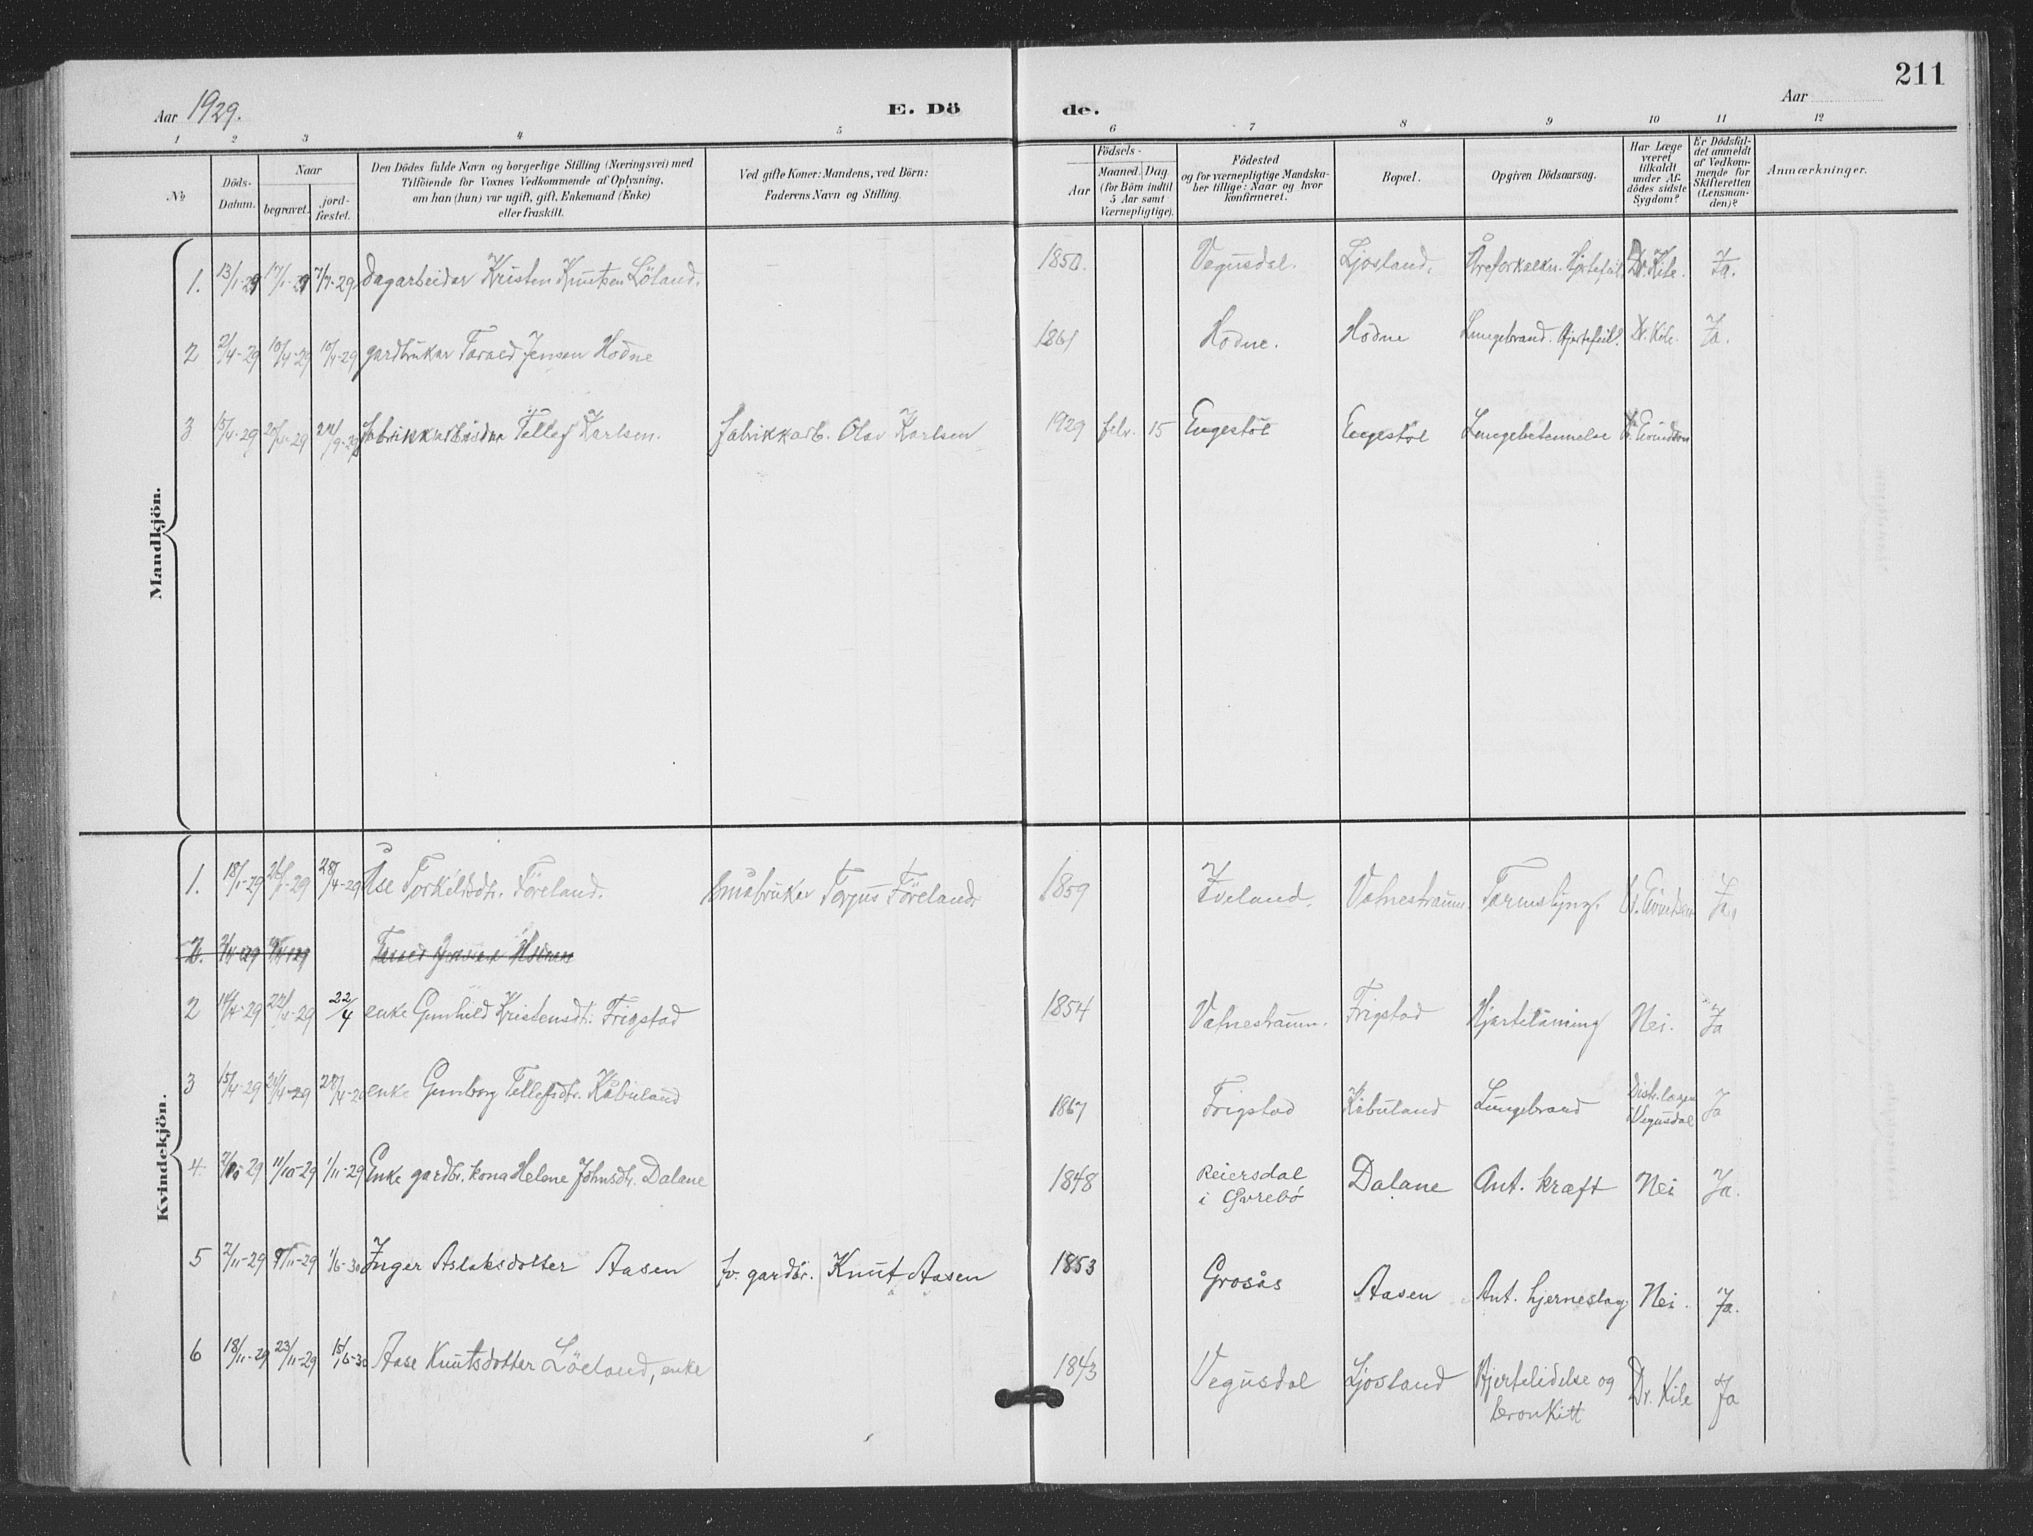 211
Aar 1929.
E. Dö
de.
Aar
1 2 3 4 5 6 7 8 9 10 11 12
№
Döds-
Datum.
Naar
begravet.
jord-
fæstet.
Den Dödes fulde Navn og borgerlige Stilling (Næringsvei) med
Tilföiende for Voxnes Vedkommende af Oplysning,
om han (hun) var ugift, gift, Enkemand (Enke)
eller fraskilt.
Ved gifte Koner: Mandens, ved Börn:
Faderens Navn og Stilling.
Födsels-
Aar
Maaned. Dag
(for Börn indtil
5 Aar samt
Værnepligtige).
Födested
og for værnepligtige Mandska-
ber tillige: Naar og hvor
konfirmeret.
Bopæl.
Opgiven Dödsaarsag.
Har Læge
været
tilkaldt
under Af-
dödes sidste
Sygdom?
Er Dödsfal-
det anmeldt
af Vedkom-
mende for
Skifteretten
(Lensman-
den)?
Anmærkninger.
Mandkjön.
1. 13/1-29 17/1-29 dagarbeider Kristen Knutsen Löland. 1850. Vegusdal. Ljosland. Åreforkalkn. Hjertefeil Dr. Kile. Ja.
2 2/4-29 10/4-29 10/4-29 gardbruker Tarald Jensen Hodne 1861 Hodne. Hodne Lungebrand. Hjertefeil. Dr. Kile. Ja.
3 15/4-29 fabrikkarbeider Tellef Karlsen. fabrikkarb. Olav Karlsen 1929 febr. 15 Engestöl Engestöl Lungebetennelse
Kvindekjön.
1. 18/1-29 26/1-29 28/4-29 Åse Torkelsdtr. Föreland. Småbruker Torjus Föreland 1859 Iveland. Vatnestraum. Tarmslyng. Ja.
2. 2/4-29 Tarald Jensen Hodne
2 14/4-29 22/4-29 22/4 enke Gunhild Kristensdtr. Frigstad 1854 Vatnestraum. Frigstad Hjertelamning Nei. Ja
3 15/4-29 enke Gunborg Tellefsdtr. Kåbuland 1867 Frigstad Kåbuland Lungebrand Distr. lægen
i Vegusdal Ja
4. 11/10-29 1/11-29 Enke gardbr. kona Helene Johnsdtr. Dalane 1848 Reiersdal
i Øvrebö Dalane Ant. kræft Nei Ja.
5 2/11-29 1/6-30 Inger Aslaksdotter Aasen fv. gardbr. Knut Aasen 1853 Grosås Aasen Ant. hjerneslag Nei. Ja.
6 18/11-29 23/11-29 15/6-30 Aase Knutsdotter Löeland, enke 1843 Vegusdal Ljosland Hjertelidelse og
bronkitt Dr. Kile Ja